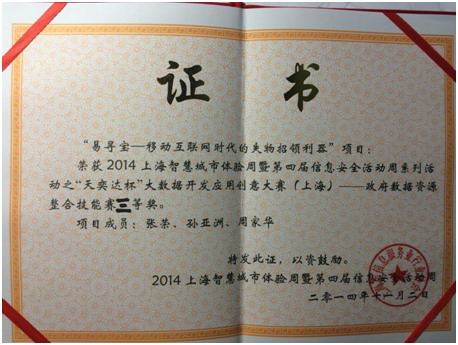 证书
“易寻宝—移动互联网时代的失物招领利器”项目：
荣获2014上海智慧城市体验周暨第四届信息安全活动周系列活
动之“天奕达杯”大数据开发应用创意大赛（上海）——政府数据资源
整合技能赛三等奖。
项目成员：张荣、孙亚洲、周家华
特发此证，以资鼓励。
2014上海智慧城市体验周暨第四届信息安全活动周
二零一四年十一月二日